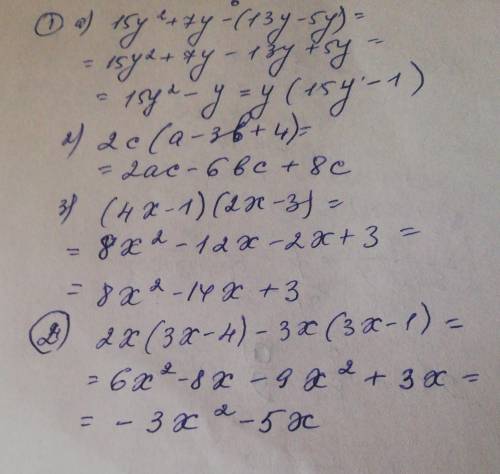 ① a) 15y²+7y-(13y-5y)=
= 15y²+7y - 13y +5y =
= 15y² - y = y (15y - 1)
2) 2c (a - 3в + 4)=
= 2ac - 6вc + 8c
3) (4x-1)(2x-3) =
= 8x² - 12x - 2x + 3 =
= 8x² - 14x + 3
② 2x(3x-4) - 3x(3x-1) =
= 6x² - 8x - 9x² + 3x =
= - 3x² - 5x